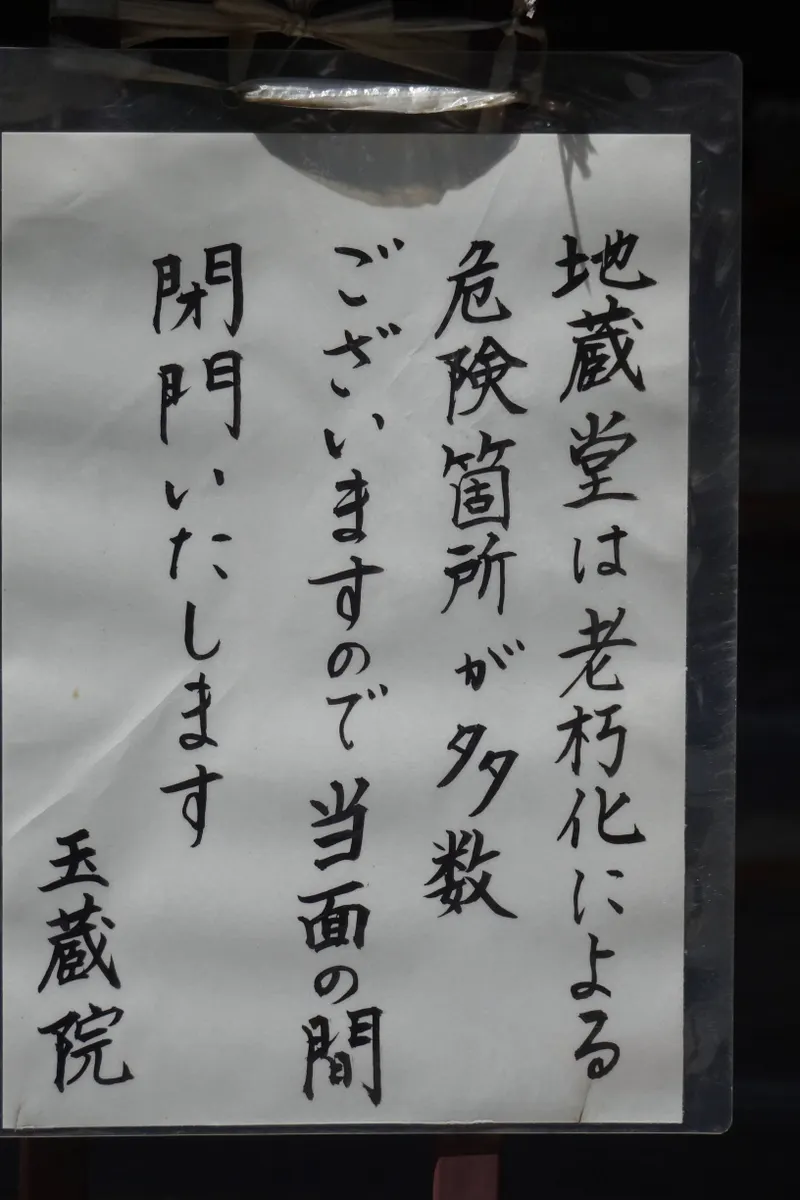 地蔵堂は老朽化による
危険箇所が多数
ございますので当面の間
閉門いたします
玉蔵院